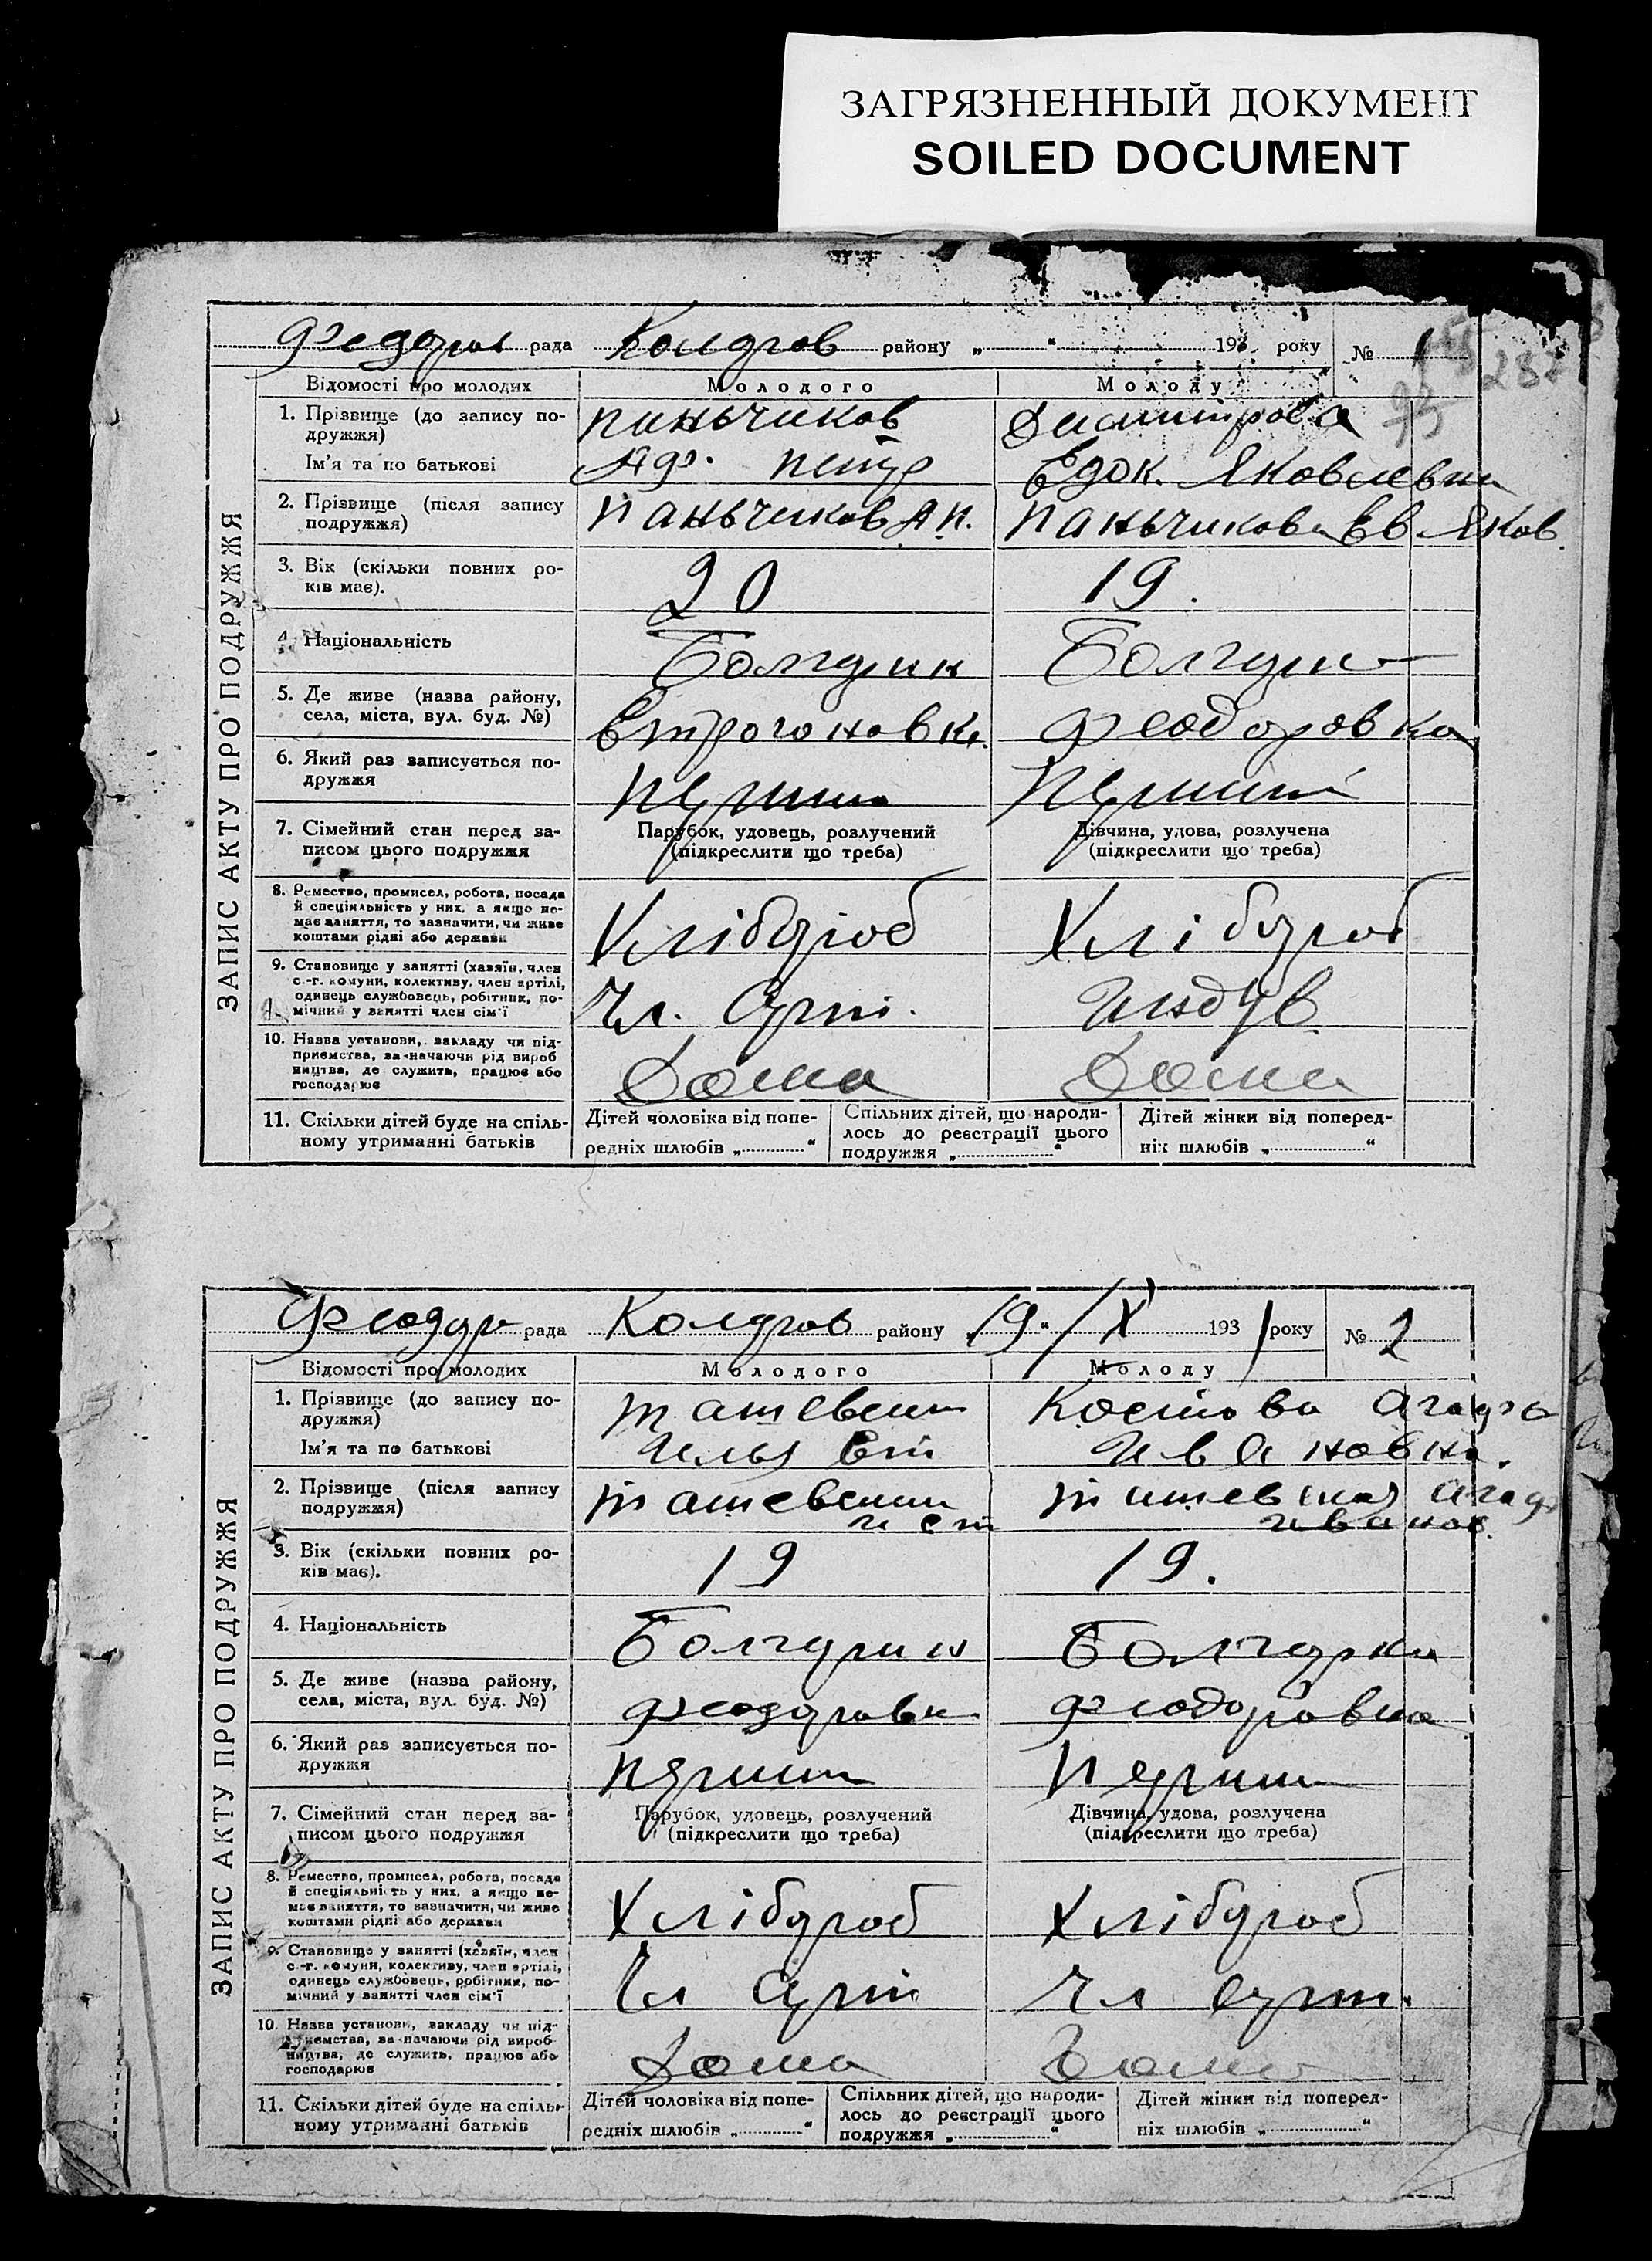 ЗАГРЯЗНЕННЫЙ ДОКУМЕНТ
SOILED DOCUMENT
рада Коларов району „ “ 193 року № 1
Відомості про молодих Молодого Молоду
1. Прізвище (до запису по-
дружжя)
Паньчиков Димитрова
Ім'я та по батькові
Аф. Петр Едок. Яковлевна
2. Прізвище (після запису
подружжя)
Паньчиков А П. Паньчикова Ев Яков.
3. Вік (скільки повних ро-
ків має).
20 19.
4. Національність
Болгарин
5. Де живе (назва району,
села, міста, вул. буд. №)
Строгоновка Феодоровка
6. Який раз записується по-
дружжя
7. Сімейний стан перед за-
писом цього подружжя
Парубок, удовець, розлучений
(підкреслити що треба)
Дівчина, удова, розлучена
(підкреслити що треба)
8. Ремество, промисел, робота, посада
й спеціяльність у них, а якщо не-
має заняття, то зазначити, чи живе
коштами рідні або держави
Хлібороб Хлібороб
9. Становище у занятті (хазяїн, член
с.-г. комуни, колективу, член артілі,
одинець службовець, робітник, по-
мічний у занятті член сім'ї
Чл. Арті. Индув.
10. Назва установи, закладу чи під-
приємства, зазначаючи рід вироб
ництва, де служить, працює або
господарює
Дома Дома
11. Скільки дітей буде на спіль-
ному утриманні батьків
Дітей чоловіка від попе-
редніх шлюбів „ “
Спільних дітей, що народи-
лось до реєстрації цього
подружжя „ “
Дітей жінки від поперед-
ніх шлюбів „ “
ЗАПИС АКТУ ПРО ПОДРУЖЖЯ
рада Коларов району 19 “ / X 193 1 року № 2
Відомості про молодих Молодого Молоду
1. Прізвище (до запису по-
дружжя)
Костова Агафа
Ім'я та по батькові
Илья Ивановна.
2. Прізвище (після запису
подружжя)
Агаф
Иванов.
3. Вік (скільки повних ро-
ків має).
19 19.
4. Національність
Болгарин Болгарка
5. Де живе (назва району,
села, міста, вул. буд. №)
Феодоровка Феодоровка
6. Який раз записується по-
дружжя
7. Сімейний стан перед за-
писом цього подружжя
Парубок, удовець, розлучений
(підкреслити що треба)
Дівчина, удова, розлучена
(підкреслити що треба)
8. Ремество, промисел, робота, посада
й спеціяльність у них, а якщо не-
має заняття, то зазначити, чи живе
коштами рідні або держави
Хлібороб Хлібороб
9. Становище у занятті (хазяїн, член
с.-г. комуни, колективу, член артілі,
одинець службовець, робітник, по-
мічний у занятті член сім'ї
Чл Арті Чл Арті.
10. Назва установи, закладу чи під-
приємства, зазначаючи рід вироб-
ництва, де служить, працює або
господарює
Дома Дома
11. Скільки дітей буде на спіль-
ному утриманні батьків
Дітей чоловіка від попе-
редніх шлюбів „ “
Спільних дітей, що народи-
лось до реєстрації цього
подружжя „ “
Дітей жінки від поперед-
ніх шлюбів „ “
ЗАПИС АКТУ ПРО ПОДРУЖЖЯ